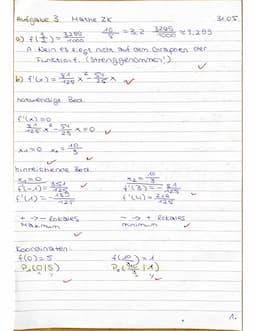 Aufgabe 3 Mathe ZK 31.05.
a) f(8/5) = 3295/1000 16/5 = 3,2 3295/1000 = 3,295
A: Nein es liegt nicht auf dem Graphen der
Funktion f. (Strenggenommen!)
b) f'(x) = 81/125 x² - 54/25 x
notwendige Bed. f'(x) = 0
81/125 x² - 54/25 x = 0
x₁ = 0 x₂ = 10/3
hinreichende Bed.
x₁ = 0 x₂ = 10/3
f'(-1) = 351/125 f'(3) = - 81/125
f'(1) = - 189/125 f'(4) = 216/125
+ → - lokales - → + lokales
Maximum minimum
Koordinaten:
f(0) = 5 f(10/3) = 1
P₁(0|5) P₂(10/3|1)
1.